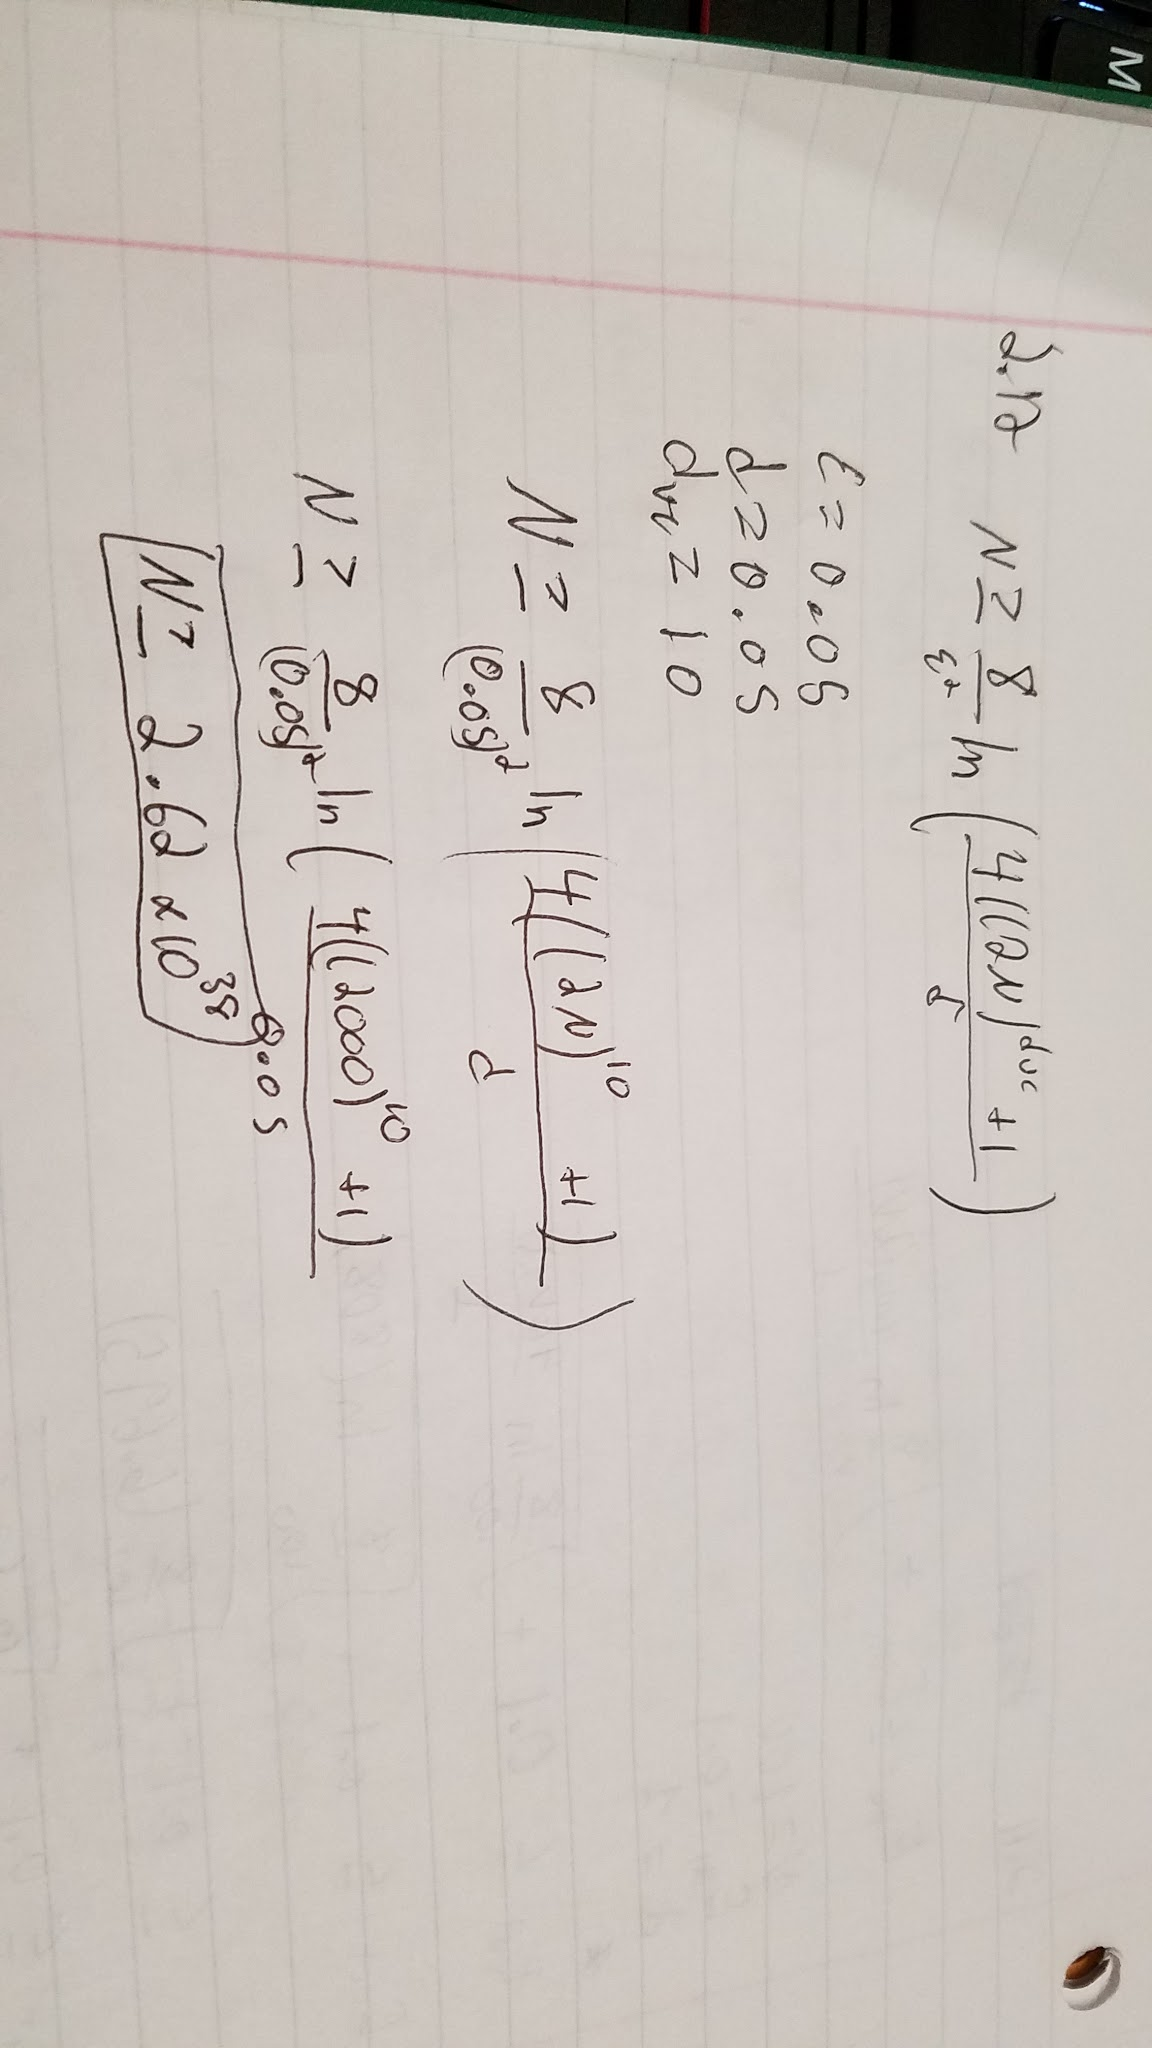 2.12 N ≥ 8/ε² ln (4((2N)^dvc + 1)/δ)
ε = 0.05
δ = 0.05
dvc = 10
N ≥ 8/(0.05)² ln (4((2N)^10 + 1)/δ)
N ≥ 8/(0.05)² ln (4((2000)^10 + 1)/0.05
N ≥ 2.62 x 10^38
M